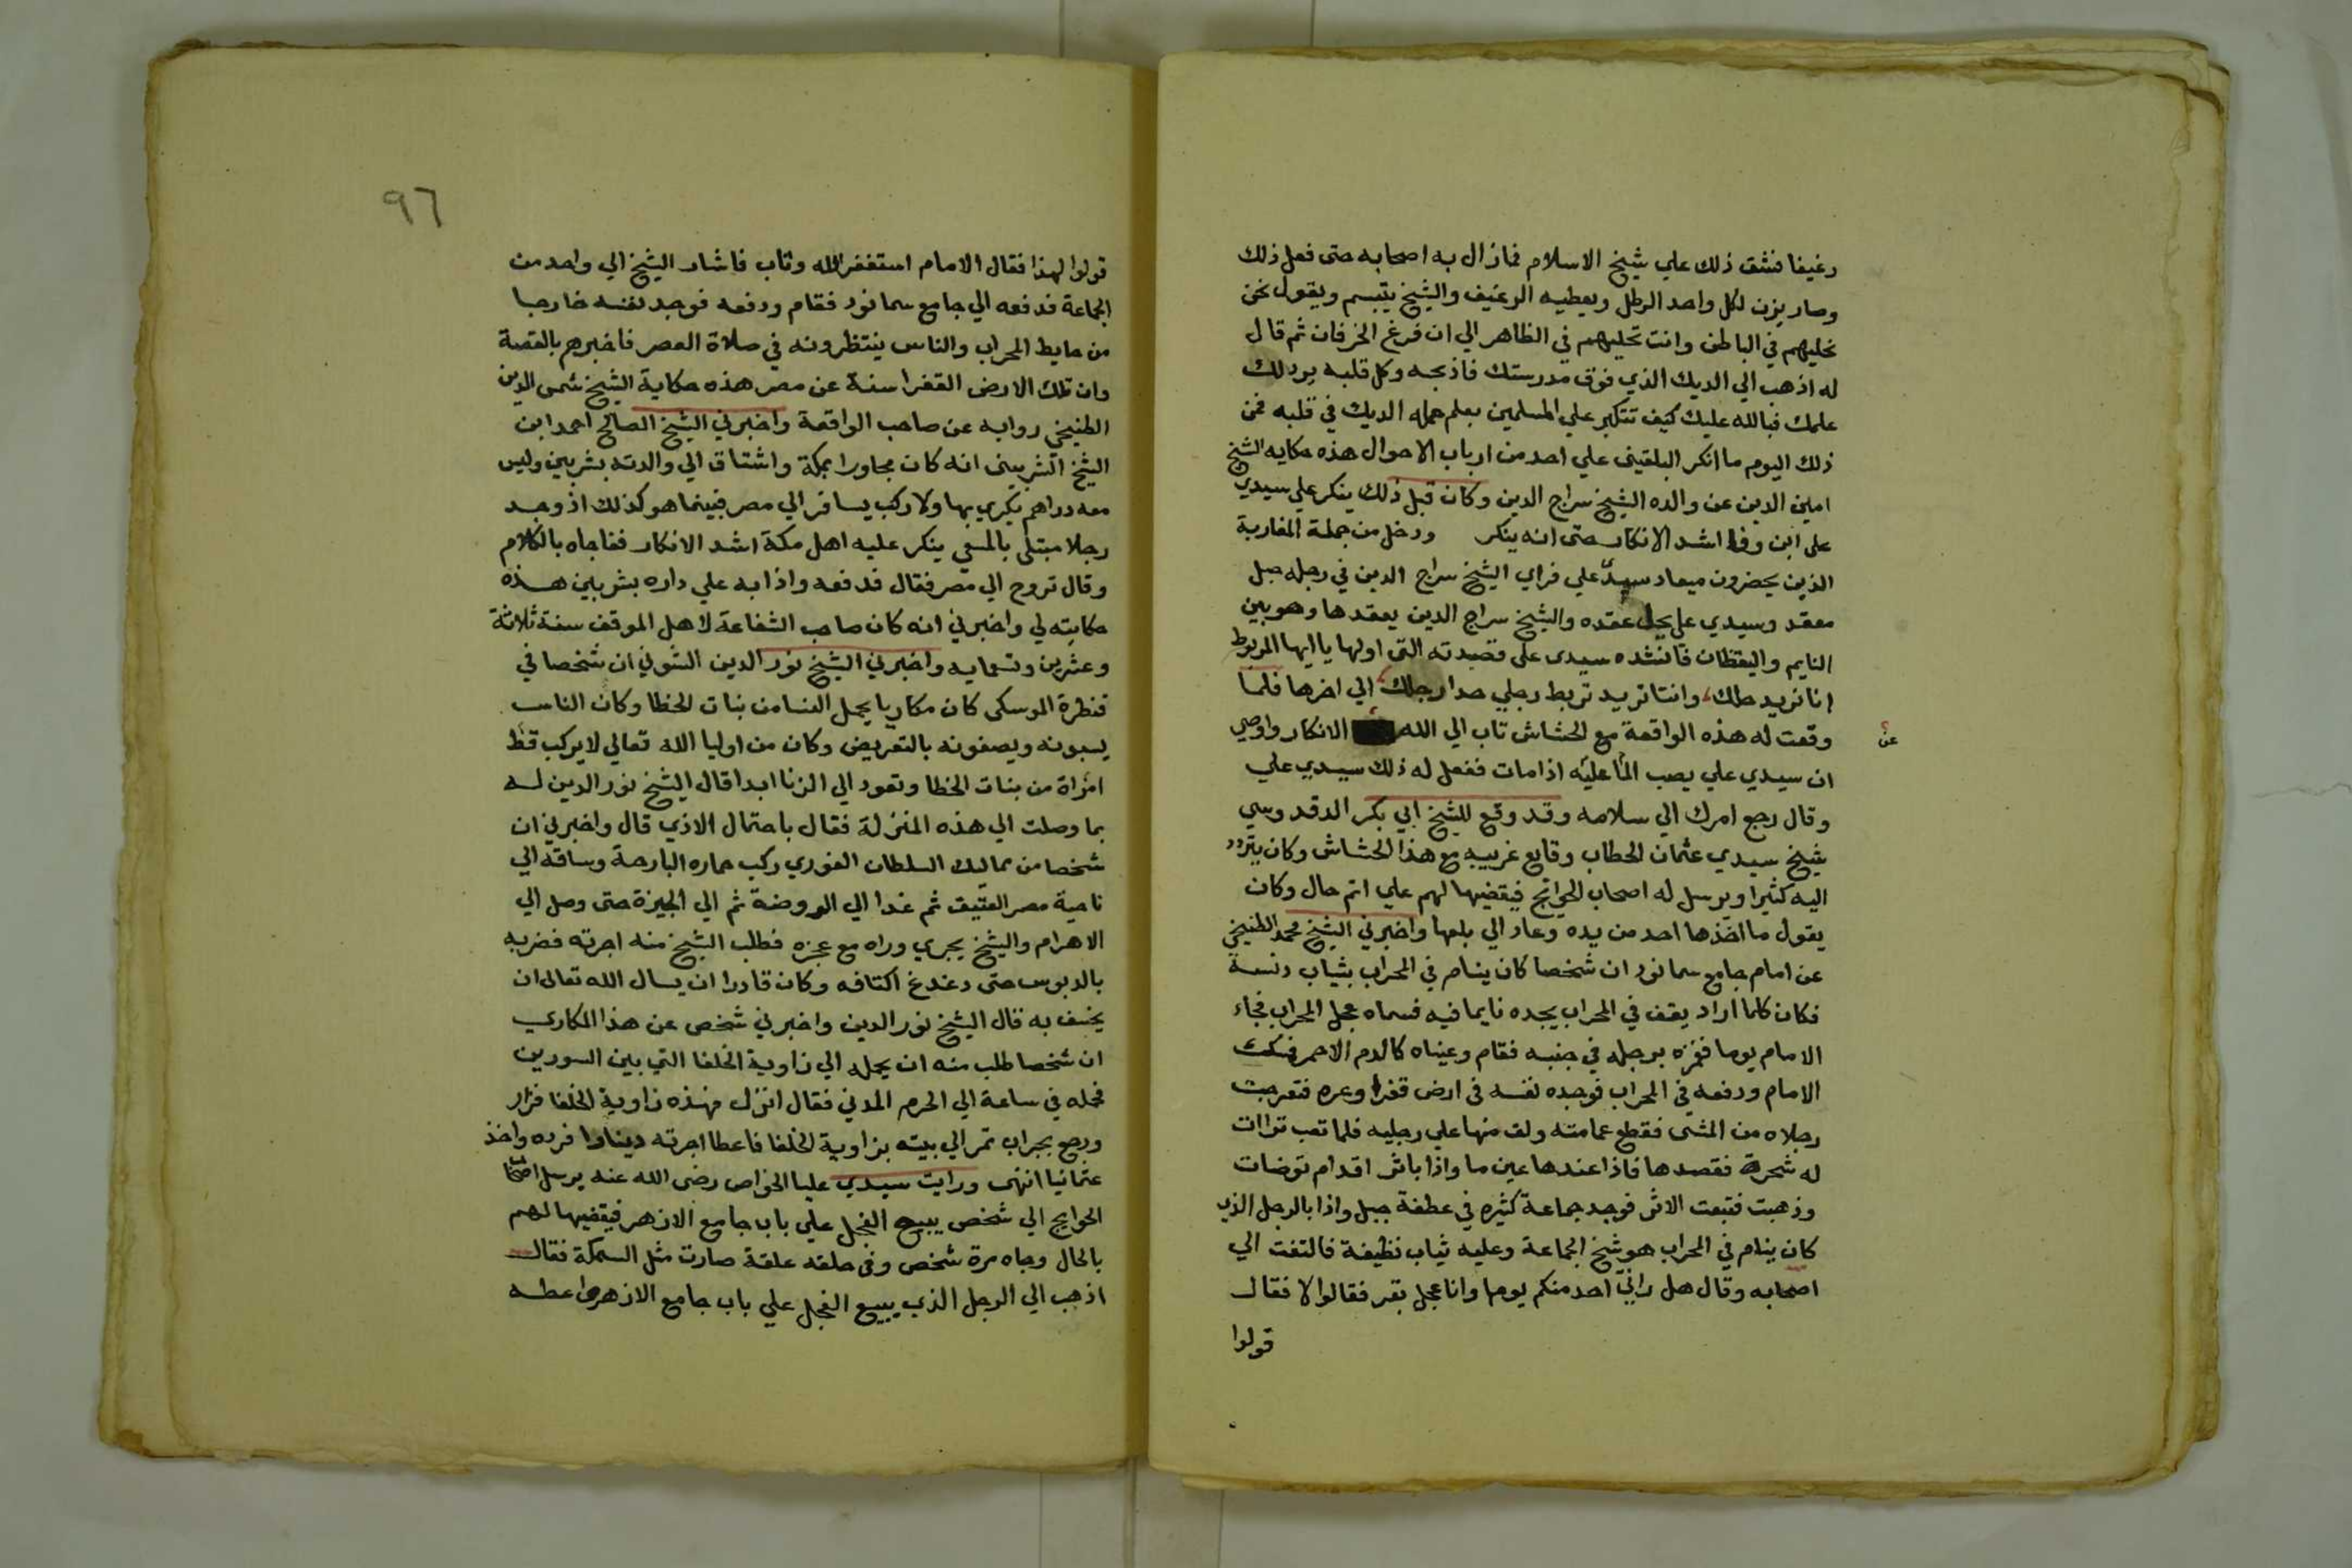 رغيفا فشق ذلك علي شيخ الاسلام فمازال به اصحابه حتى فعل ذلك
وصار يزن لكل واحد الرطل ويعطيه الرغيف والشيخ يتبسم ويقول نحن
نخليهم في الباطن وانت تخليهم في الظاهر الي ان فرغ الخرفان ثم قال
له اذهب الي الديك الذي فوق مدرستك فاذبحه وكل قلبه يرد لك
علمك فبالله عليك كيف تتكبر علي المسلمين بعلم حمله الديك في قلبه فمن
ذلك اليوم ما انكر البلقيني علي احد من ارباب الاحوال هذه حكايه الشيخ
امين الدين عن والده الشيخ سراج الدين وكان قبل ذلك ينكر علي سيدي
على ابن وفا اشد الانكار حتى انه ينكر ودخل من جملة المغاربة
الذين يحضرون ميعاد سيدي علي فراي الشيخ سراج الدين في رجله حبل
معقد وسيدي على يحل عقده والشيخ سراج الدين يعقدها وهو بين
النايم واليقظان فانشده سيدى على قصيدته التى اولها يا ايها المربوط
انا نريد حلك، وانتا تريد تربط رجلي حدا رجلك، الي اخرها فلما
وقعت له هذه الواقعة مع الحشاش تاب الي الله الانكار واوصي
عن
ان سيدي علي يصب الما عليه اذا مات ففعل له ذلك سيدي علي
وقال رجع امرك الي سلامه وقد وقع للشيخ ابي بكر الدقدوسي
شيخ سيدي عثمان الحطاب وقايع غريبه مع هذا الحشاش وكان يتردد
اليه كثيرا ويرسل له اصحاب الحوايج فيقضيها لهم علي اتم حال وكان
يقول ما اخذها احد من يده وعاد الي بلعها واخبرني الشيخ محمد الطنيخي
عن امام جامع سمانود ان شخصا كان ينام في المحراب بثياب دنسة
فكان كلما اراد يقف في المحراب يجده نايما فيه فسماه عجل المحراب فجاء
الامام يوما فغمزه برجله في جنبه فقام وعيناه كالدم الاحمر فمسك
الامام ودفعه في المحراب فوجده نفسه فى ارض قفرا وعره فتعرجت
رجلاه من المشى فقطع عمامته ولف منها علي رجليه فلما تعب تراات
له شجرة فقصدها فاذا عندها عين ما واذا باثر اقدام توضات
وذهبت فتبعت الاثر فوجد جماعة كثيره في عطفة جبل واذا بالرجل الذي
كان ينام في المحراب هو شيخ الجماعة وعليه ثياب نظيفة فالتفت الي
اصحابه وقال هل راني احد منكم يوما وانا عجل بقر فقالوا لا فقال
قولوا
٩٦
قولوا لهذا فقال الامام استغفر الله وتاب فاشار الشيخ الي واحد من
الجماعة فدفعه الي جامع سمانود فقام ودفعه فوجد نفسه خارجا
من حايط المحراب والناس ينتظرونه في صلاة العصر فاخبرهم بالقصة
وان تلك الارض القفرا سنة عن مصر هذه حكاية الشيخ شمس الدين
الطنيخي روايه عن صاحب الواقعة واخبرني الشيخ الصالح احمد ابن
الشيخ الشربيني انه كان مجاورا بمكة واشتاق الي والدته بشربين وليس
معه دراهم يكري بها ولا ركب يسافر الي مصر فبينما هو كذلك اذ وجد
رجلا مبتلى بالمسعي ينكر عليه اهل مكة اشد الانكار ففاجاه بالكلام
وقال تروح الي مصر فقال فدفعه واذا به علي داره بشربين هذه
حكايته لي واخبرني انه كان صاحب الشفاعة لاهل الموقف سنة ثلاثة
وعشرين وتسعمايه واخبرني الشيخ نور الدين الشوني ان شخصا في
قنطرة الموسكى كان مكاريا يحمل النسا من بنات الخطا وكان الناس
يسبونه ويصفونه بالتعريض وكان من اوليا الله تعالي لا يركب قط
امراة من بنات الخطا وتعود الي الزنا ابدا قال الشيخ نور الدين له
بما وصلت الي هذه المنزلة فقال باحتمال الاذي قال واخبرني ان
شخصا من مماليك السلطان الغوري ركب حماره البارحة وساقه الي
ناحية مصر العتيق ثم غدا الي الروضة ثم الي الجيزة حتى وصل الي
الاهرام والشيخ يجري وراه مع عجزه فطلب الشيخ منه اجرته فضربه
بالدبوس حتى دغدغ اكتافه وكان قادرا ان يسال الله تعالى ان
يخسف به قال الشيخ نور الدين واخبرني شخص عن هذا المكاري
ان شخصا طلب منه ان يحمله الي زاوية الخلفا التي بين السورين
فحمله في ساعة الي الحرم المدني فقال انزل فهذه زاوية الخلفا فزار
ورجع بجراب تمر الي بيته بزاوية الخلفا فاعطا اجرته دينارا فرده واخذ
عثمانيا انتهى ورايت سيدي عليا الخواص رضى الله عنه يرسل اصحاب
الحوايج الي شخص يبيع الفجل علي باب جامع الازهر فيقضيها لهم
بالحال وجاه مرة شخص وفى حلقه علقة صارت مثل السمكة فقال
اذهب الي الرجل الذي يبيع الفجل علي باب جامع الازهر واعطه